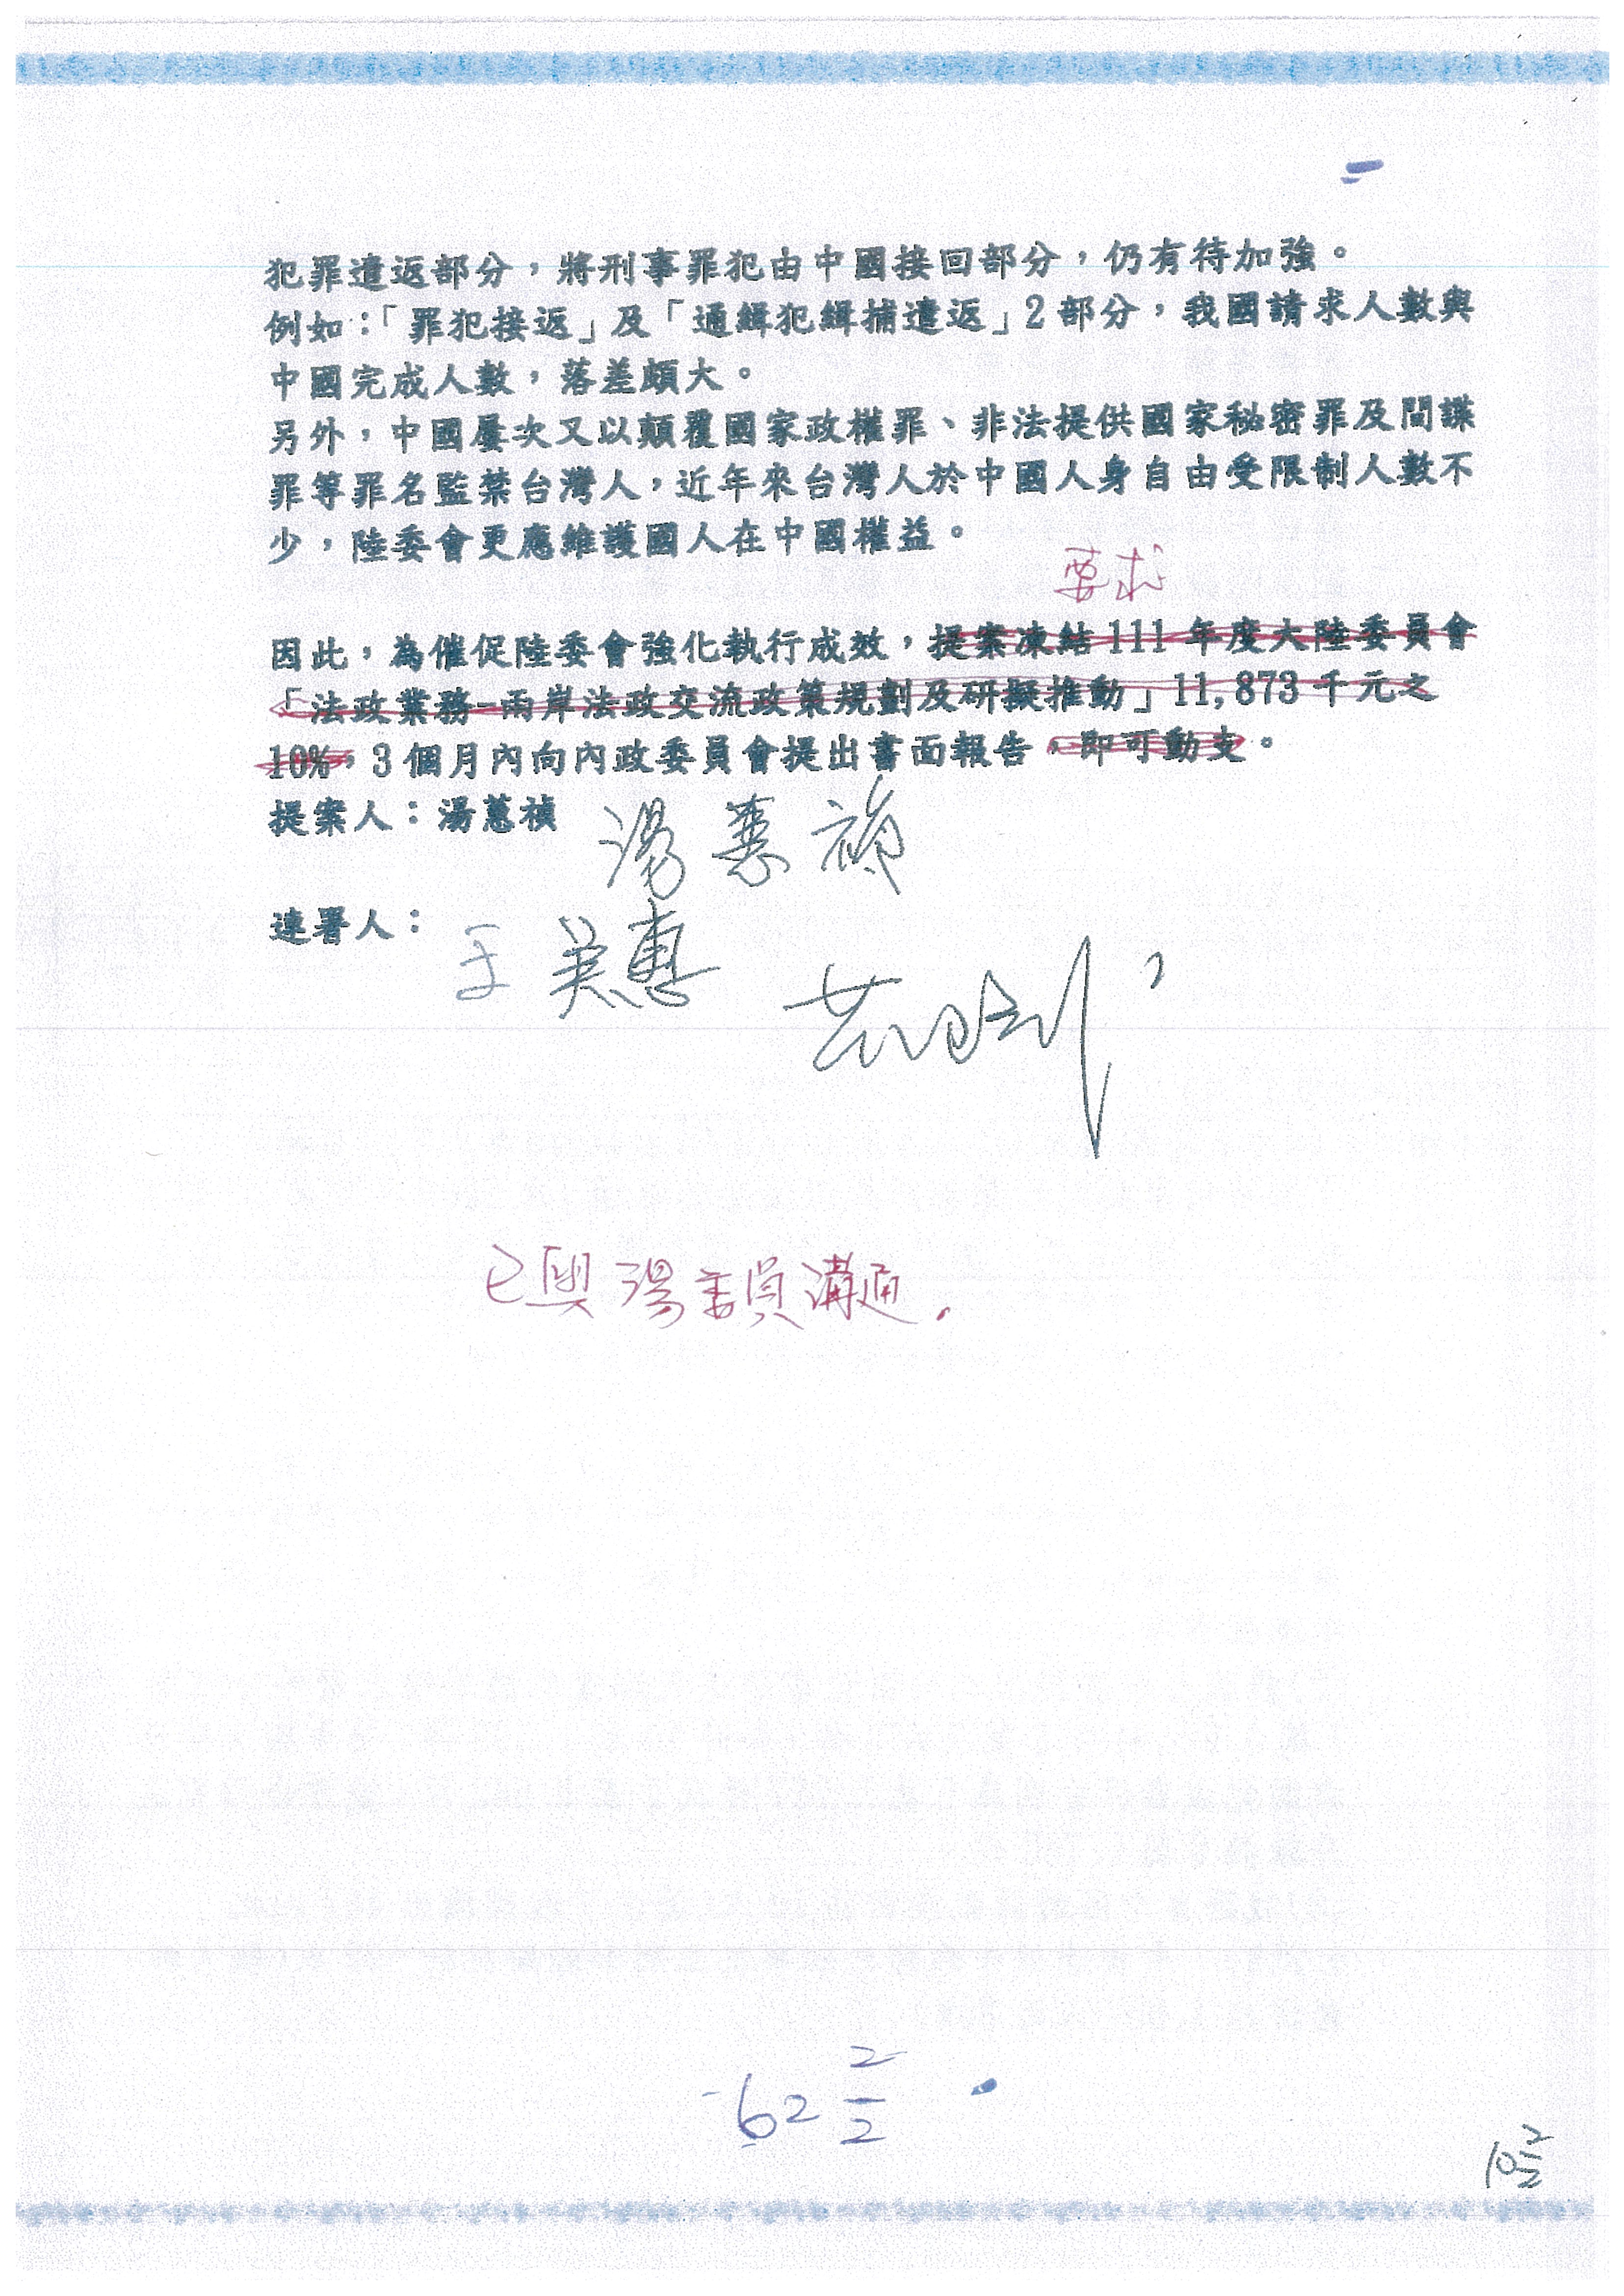 犯罪遣返部分，將刑事罪犯由中國接回部分，仍有待加強。
例如：「罪犯接返」及「通緝犯緝捕遣返」2部分，我國請求人數與
中國完成人數，落差頗大。
另外，中國屢次又以顛覆國家政權罪、非法提供國家秘密罪及間諜
罪等罪名監禁台灣人，近年來台灣人於中國人身自由受限制人數不
少，陸委會更應維護國人在中國權益。
要求
因此，為催促陸委會強化執行成效，提案凍結111年度大陸委員會
「法政業務-兩岸法政交流政策規劃及研擬推動」11,873千元之
10%，3個月內向內政委員會提出書面報告，即可動支。
提案人：湯蕙禎 湯蕙禎
連署人：
王美惠
已與湯委員溝通.
-62 2/2